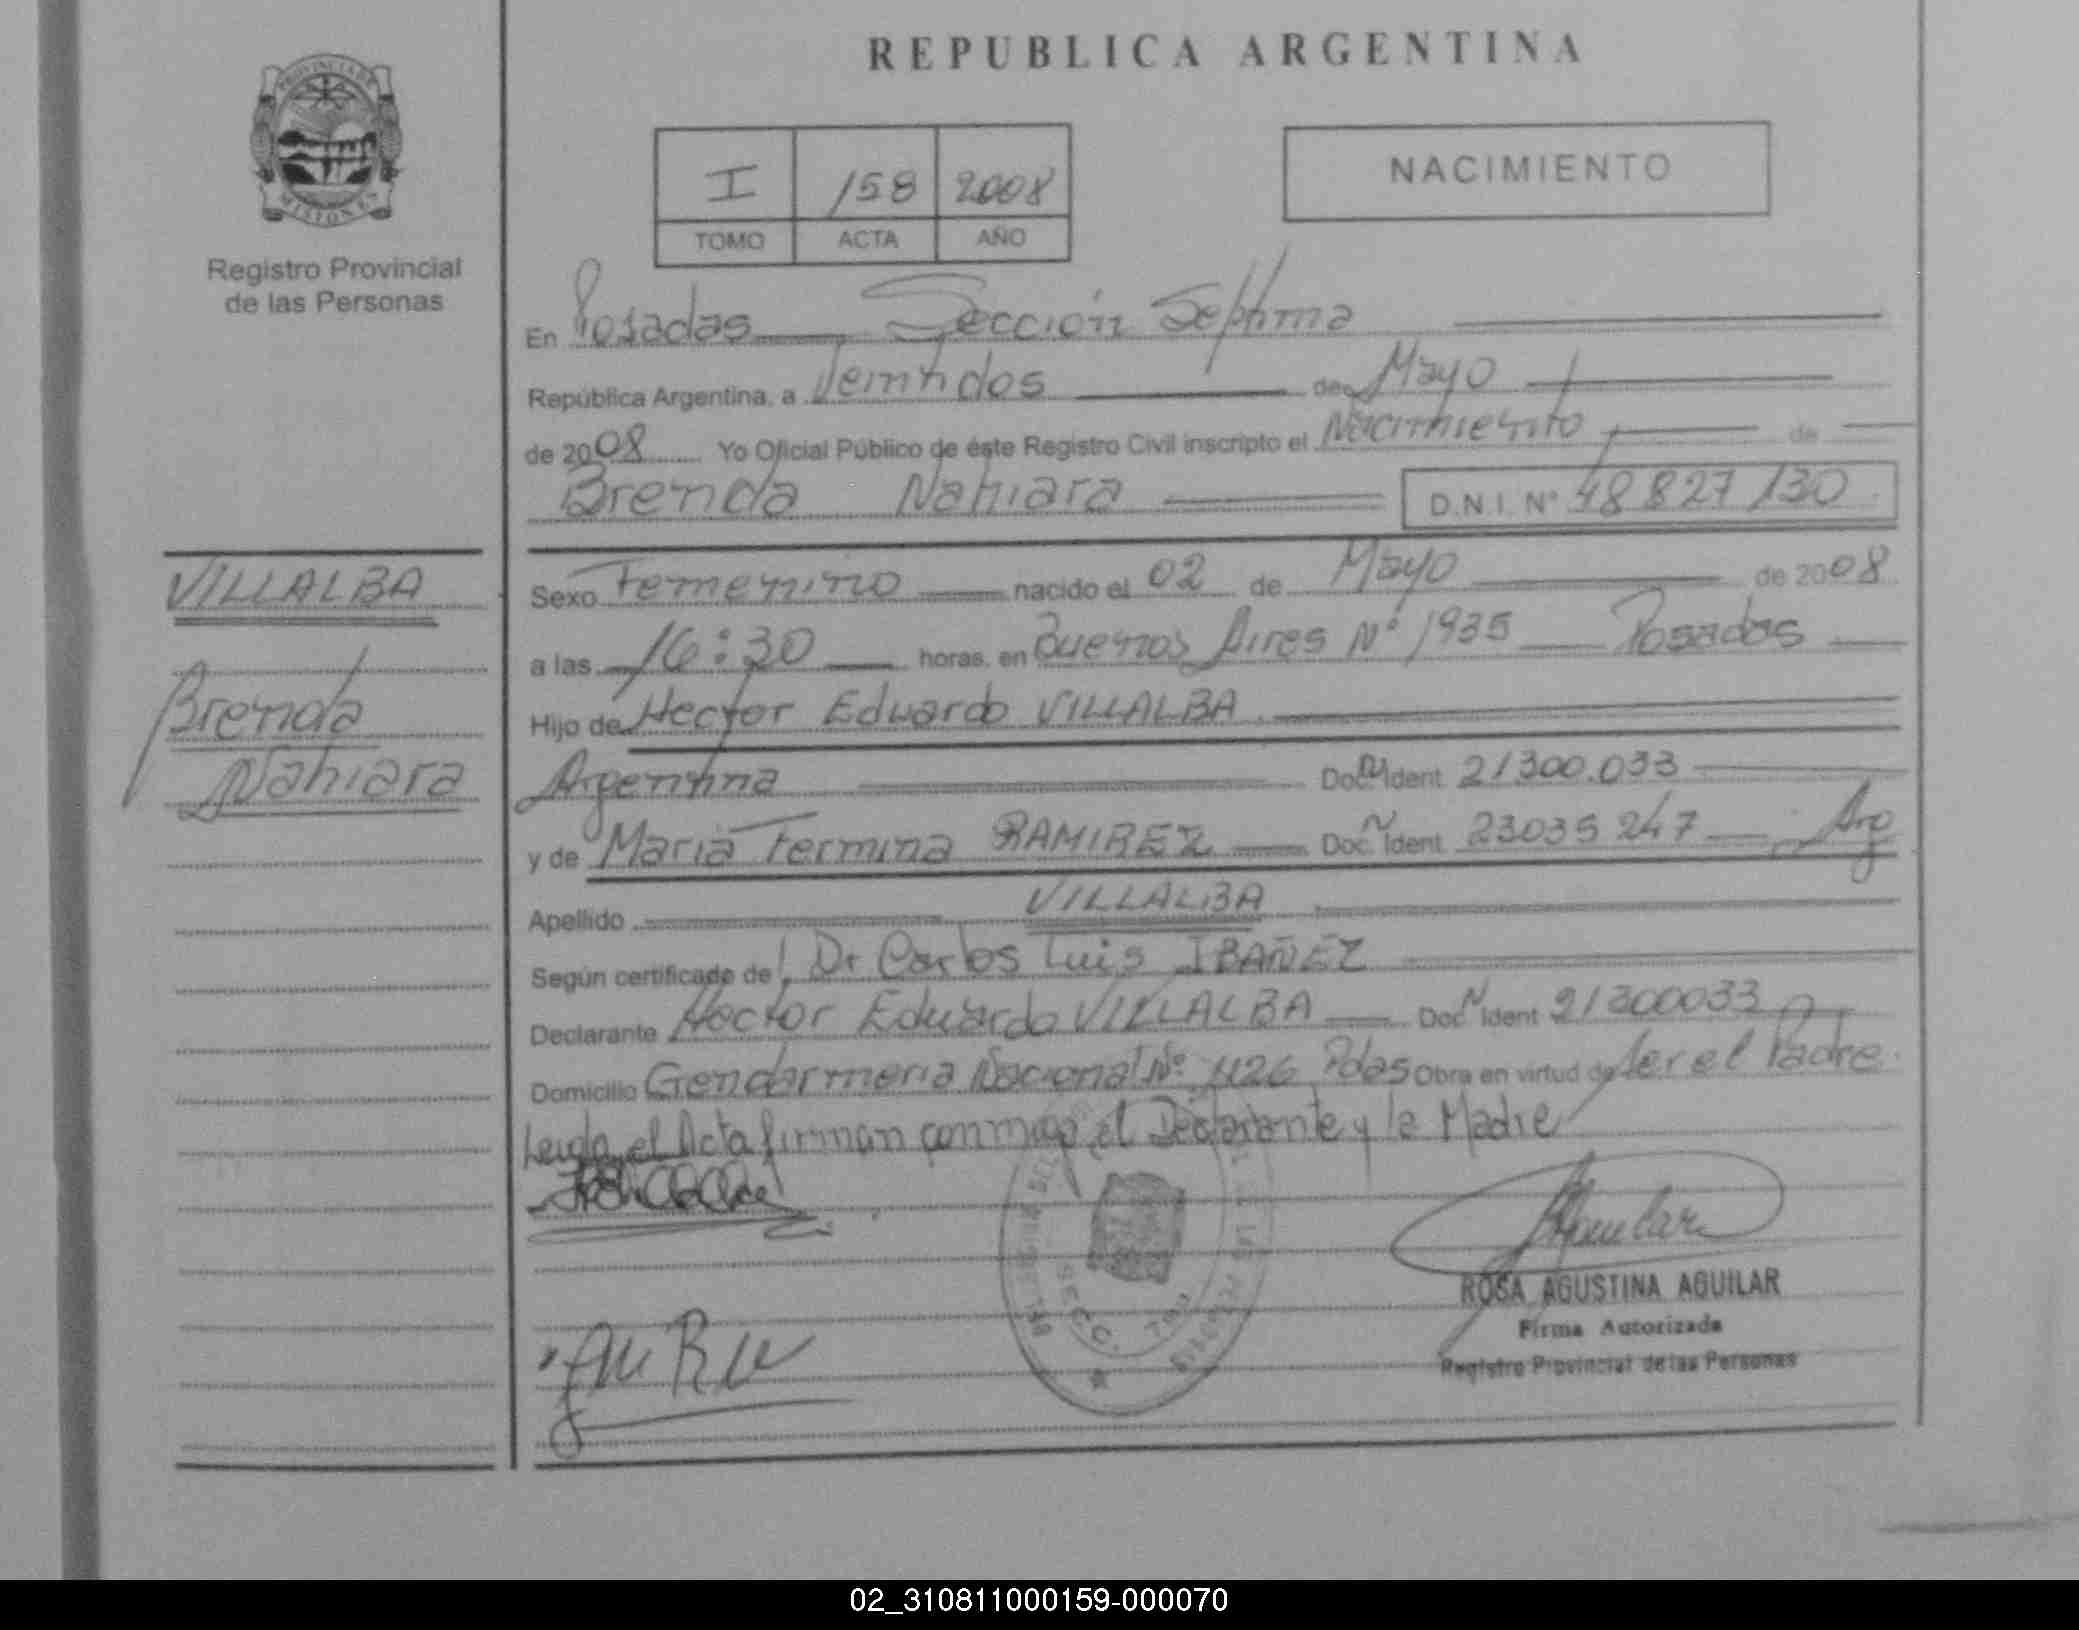 REPUBLICA ARGENTINA
PROVINCIA DE
MISIONES
Registro Provincial
de las Personas
I 158 2008
TOMO ACTA AÑO
NACIMIENTO
En Posadas Sección Septima
República Argentina, a Veintidos de Mayo
de 2008 Yo Oficial Público de éste Registro Civil inscripto el Nacimiento de
Brenda Nahiara D.N.I. Nº 48827130
VILLALBA
Brenda
Nahiara
Sexo Femenino nacido el 02 de Mayo de 2008
a las 16:30 horas, en Buenos Aires Nº 1935 Posadas
Hijo de Hector Eduardo VILLALBA
Argentina Doc. Ident 21300.033
y de Maria Fermina RAMIREZ Doc. Ident 23035247 Arg
Apellido VILLALBA
Según certificado de Dr Carlos Luis IBAÑEZ
Declarante Hector Eduardo VILLALBA Doc. Ident 21300033
Domicilio Gendarmeria Nacional Nº 426 Pdas Obra en virtud de ser el Padre
Leida el Acta firman conmigo el Declarante y la Madre
Aguilar
ROSA AGUSTINA AGUILAR
Firma Autorizada
Registro Provincial de las Personas
02_310811000159-000070